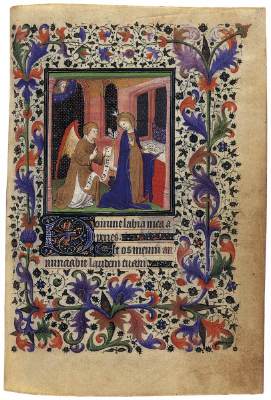 Domine labia mea a
peries
Et os meum an
nunciabit laudem tuam